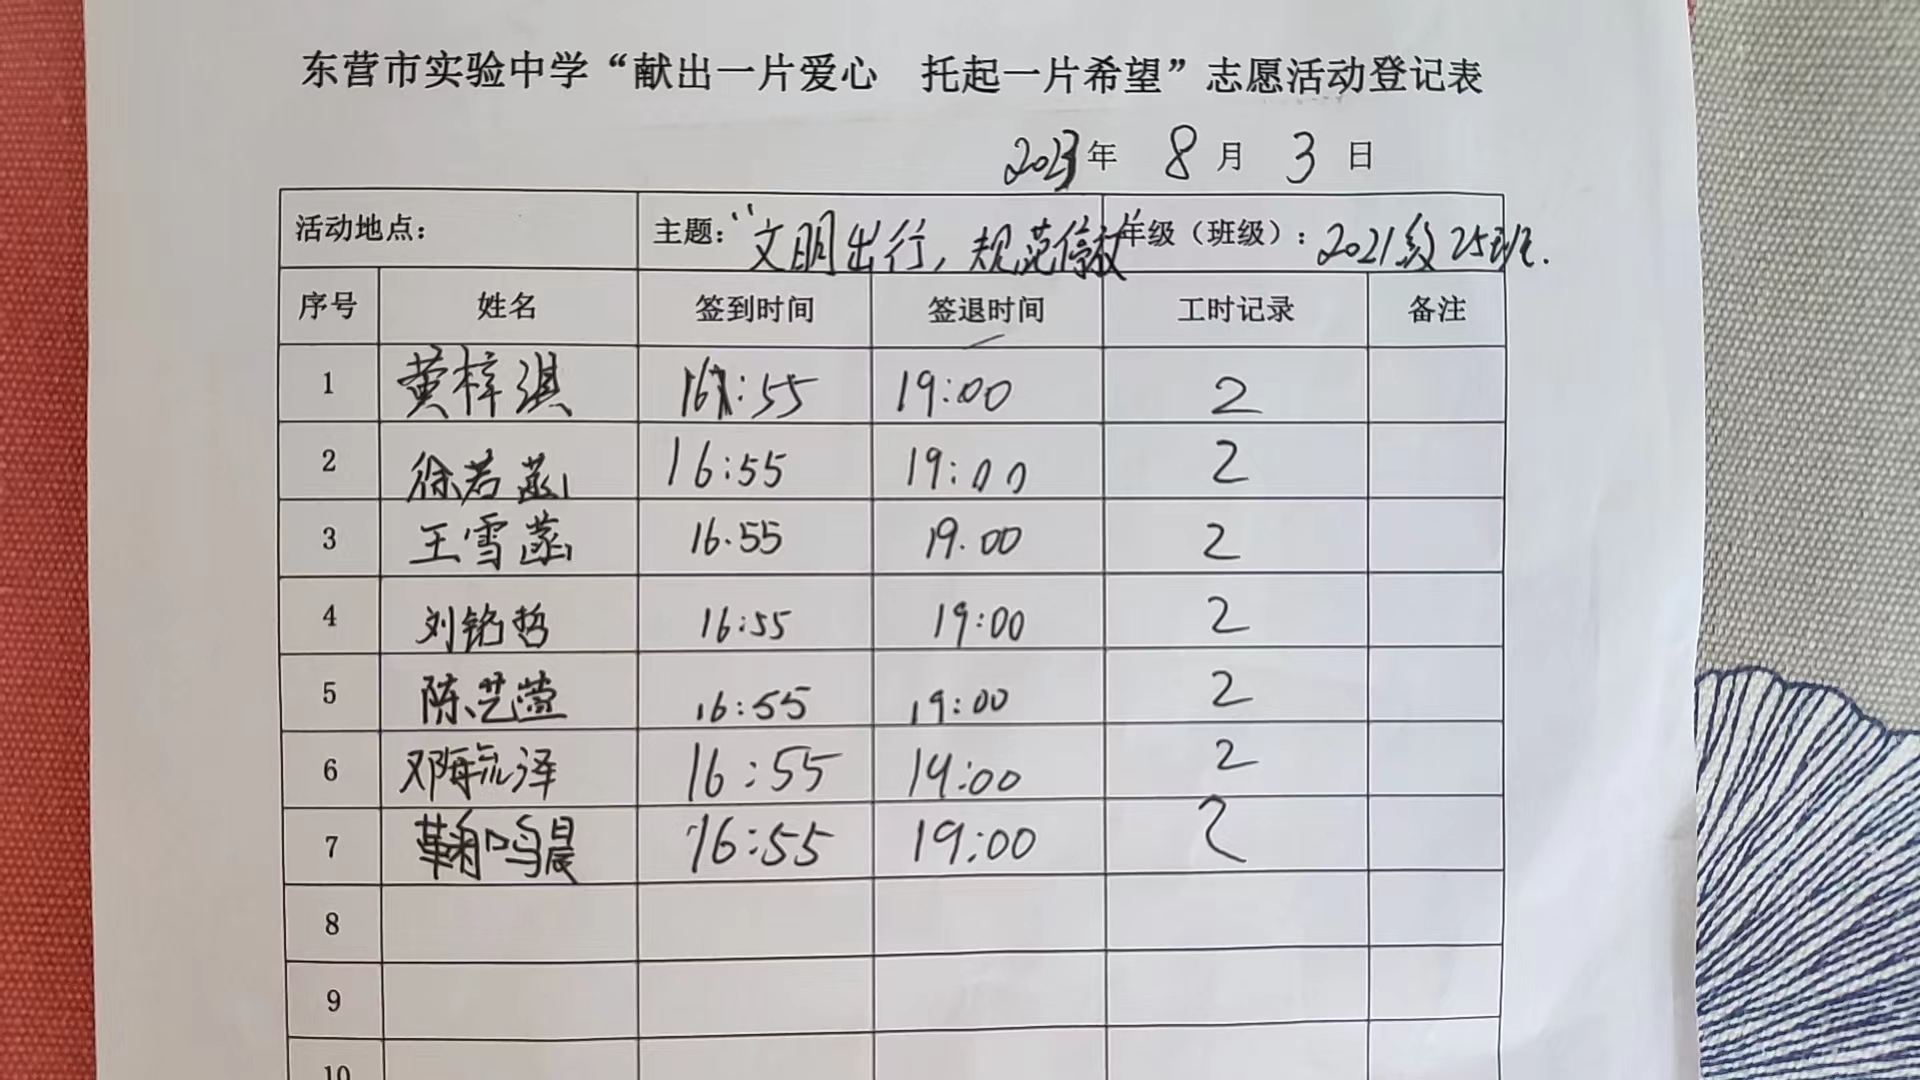 东营市实验中学“献出一片爱心 托起一片希望”志愿活动登记表
2023年 8月 3日
活动地点： 主题：“文明出行，规范停放 年级（班级）：2021级25班.
序号 姓名 签到时间 签退时间 工时记录 备注
1 黄梓淇 16:55 19:00 2
2 徐若菡 16:55 19:00 2
3 王雪菡 16.55 19.00 2
4 刘铭哲 16:55 19:00 2
5 陈艺萱 16:55 19:00 2
6 邓海沅泽 16:55 19:00 2
7 鞠鸣晨 16:55 19:00 2
8
9
10